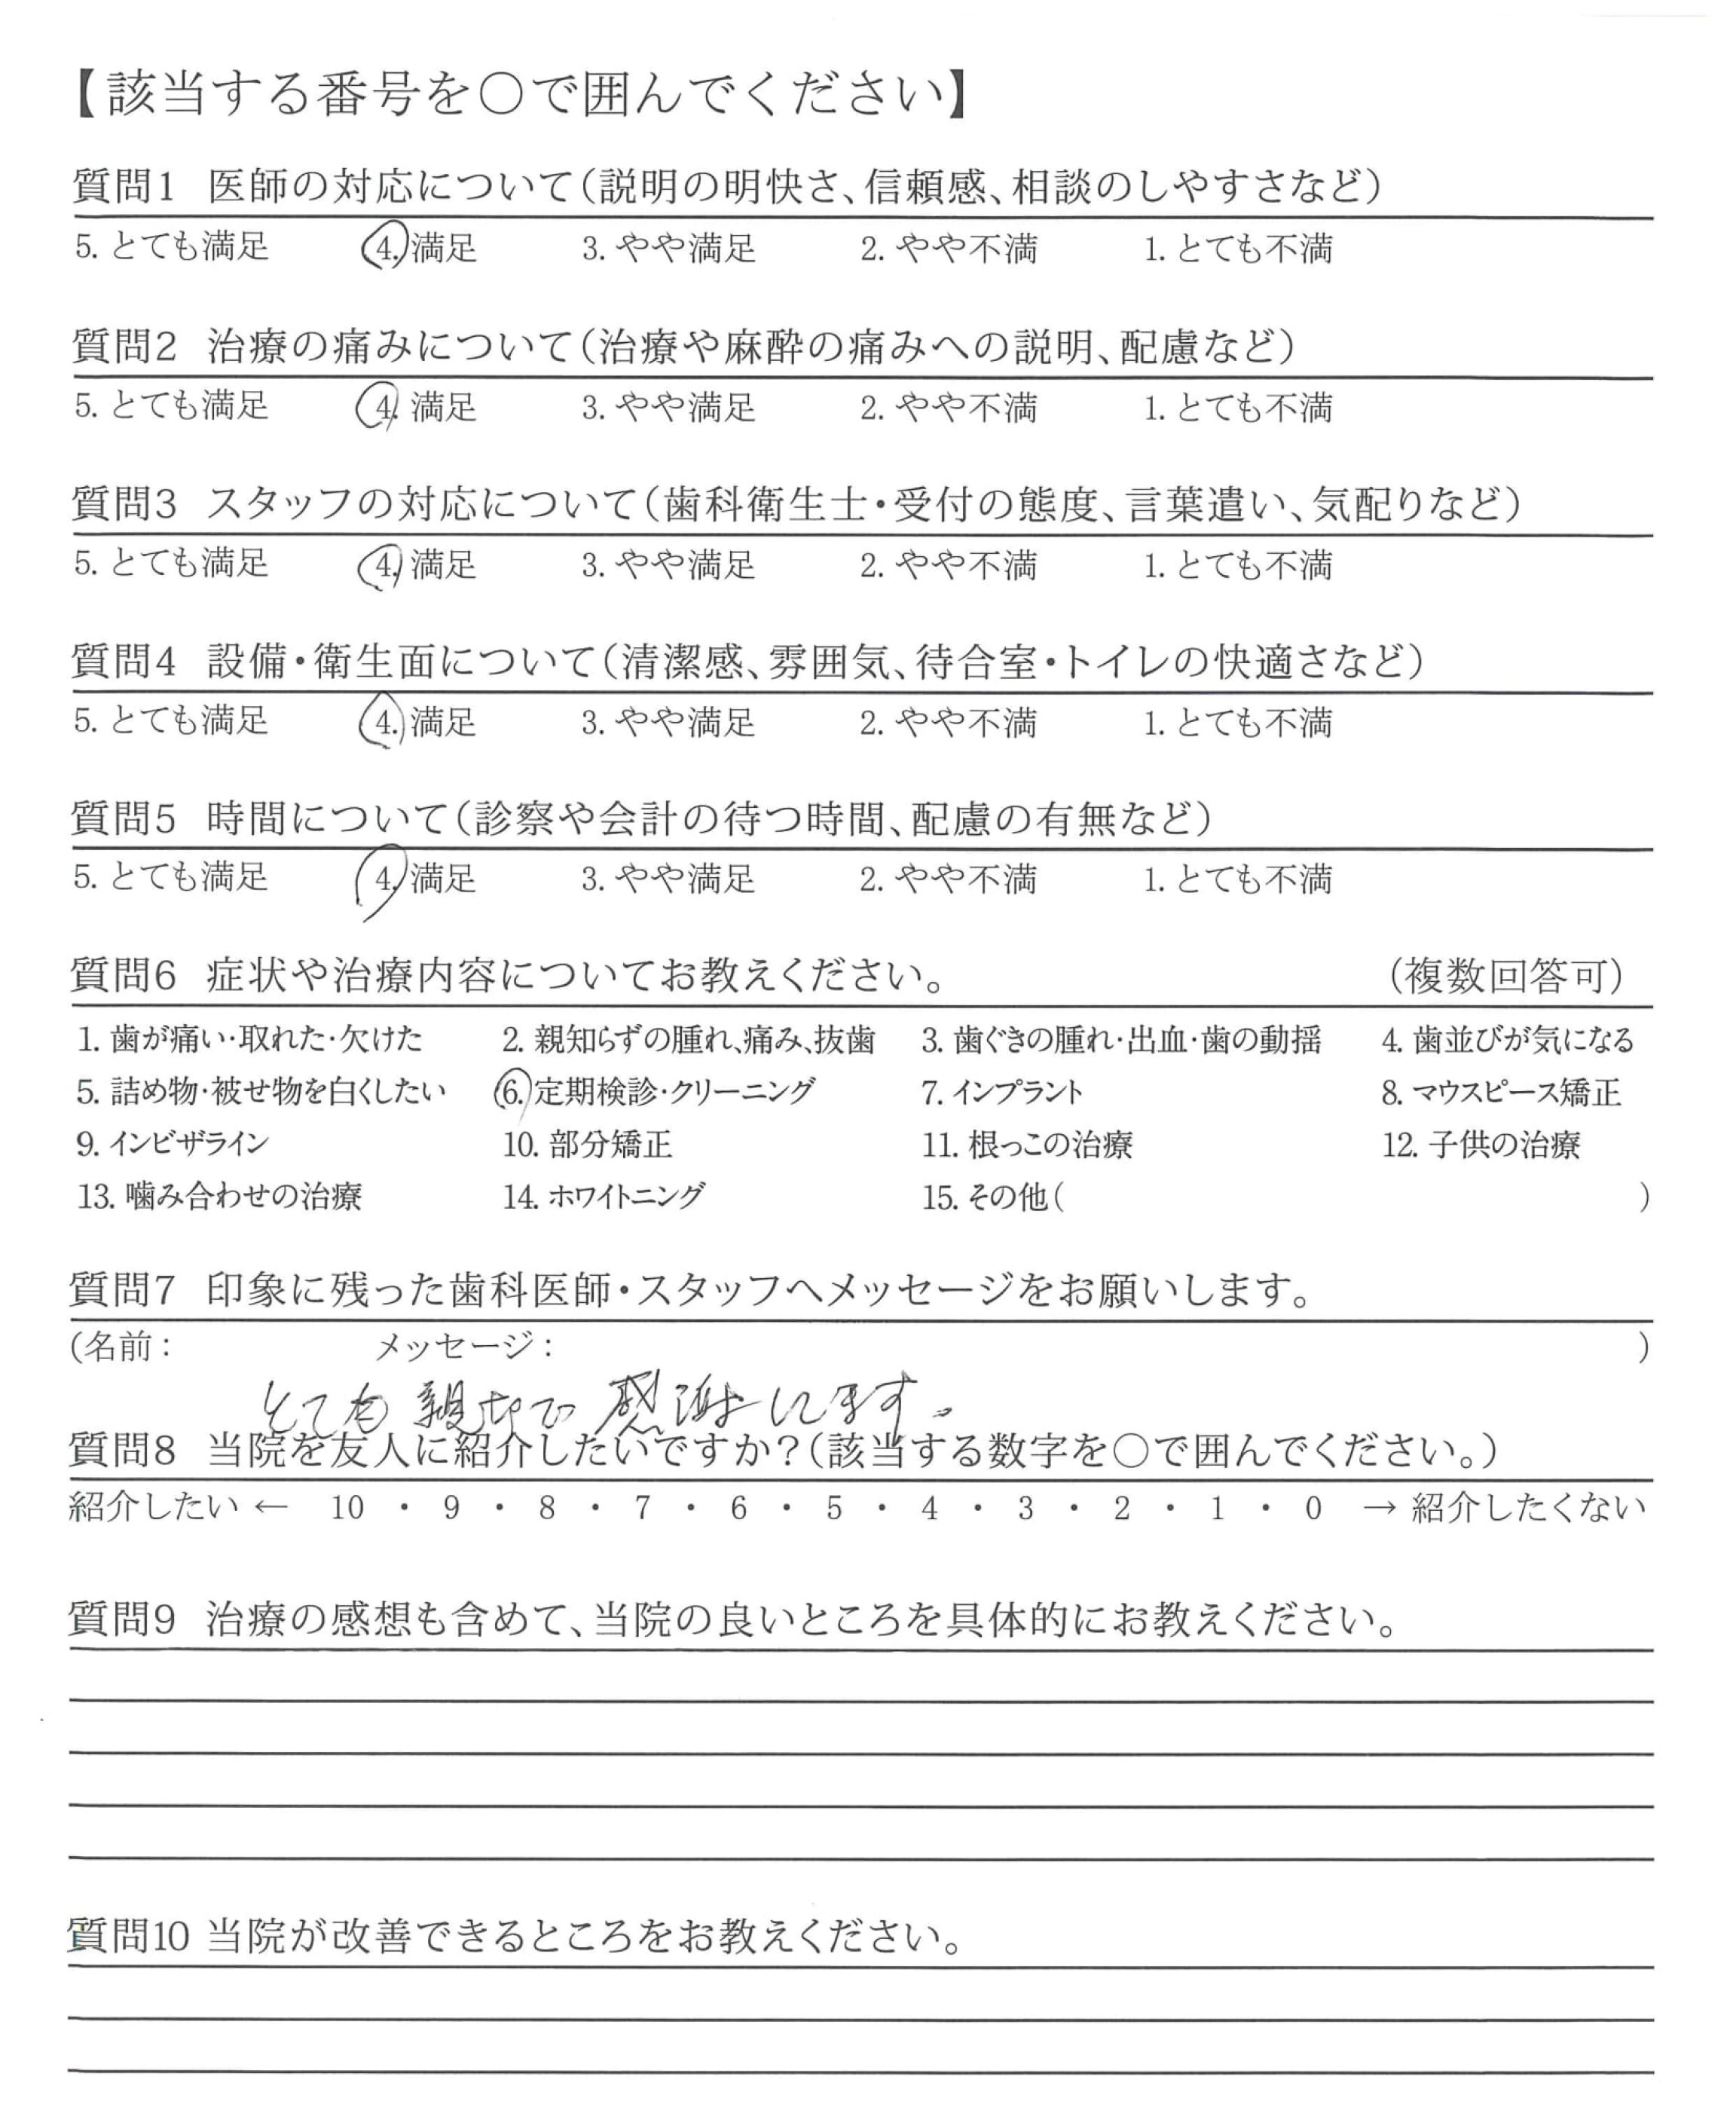 【該当する番号を○で囲んでください】
質問1 医師の対応について(説明の明快さ、信頼感、相談のしやすさなど)
5. とても満足 4. 満足 3. やや満足 2. やや不満 1. とても不満
質問2 治療の痛みについて(治療や麻酔の痛みへの説明、配慮など)
5. とても満足 4. 満足 3. やや満足 2. やや不満 1. とても不満
質問3 スタッフの対応について(歯科衛生士・受付の態度、言葉遣い、気配りなど)
5. とても満足 4. 満足 3. やや満足 2. やや不満 1. とても不満
質問4 設備・衛生面について(清潔感、雰囲気、待合室・トイレの快適さなど)
5. とても満足 4. 満足 3. やや満足 2. やや不満 1. とても不満
質問5 時間について(診察や会計の待つ時間、配慮の有無など)
5. とても満足 4. 満足 3. やや満足 2. やや不満 1. とても不満
質問6 症状や治療内容についてお教えください。 (複数回答可)
1. 歯が痛い・取れた・欠けた 2. 親知らずの腫れ、痛み、抜歯 3. 歯ぐきの腫れ・出血・歯の動揺 4. 歯並びが気になる
5. 詰め物・被せ物を白くしたい 6. 定期検診・クリーニング 7. インプラント 8. マウスピース矯正
9. インビザライン 10. 部分矯正 11. 根っこの治療 12. 子供の治療
13. 噛み合わせの治療 14. ホワイトニング 15. その他( )
質問7 印象に残った歯科医師・スタッフへメッセージをお願いします。
(名前: メッセージ: )
とても親切で感謝します。
質問8 当院を友人に紹介したいですか?(該当する数字を○で囲んでください。)
紹介したい ← 10 ・ 9 ・ 8 ・ 7 ・ 6 ・ 5 ・ 4 ・ 3 ・ 2 ・ 1 ・ 0 → 紹介したくない
質問9 治療の感想も含めて、当院の良いところを具体的にお教えください。
質問10 当院が改善できるところをお教えください。